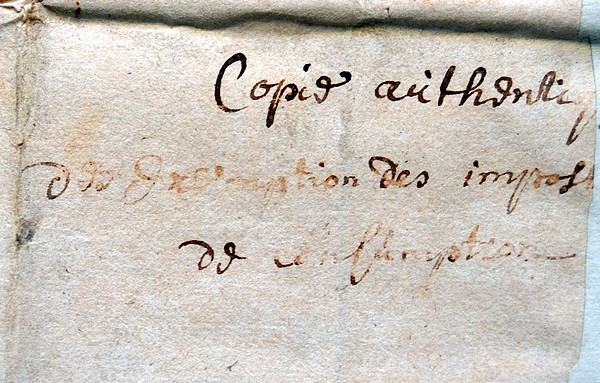 Copie authentiq
des Exemption des impost
de Consumption